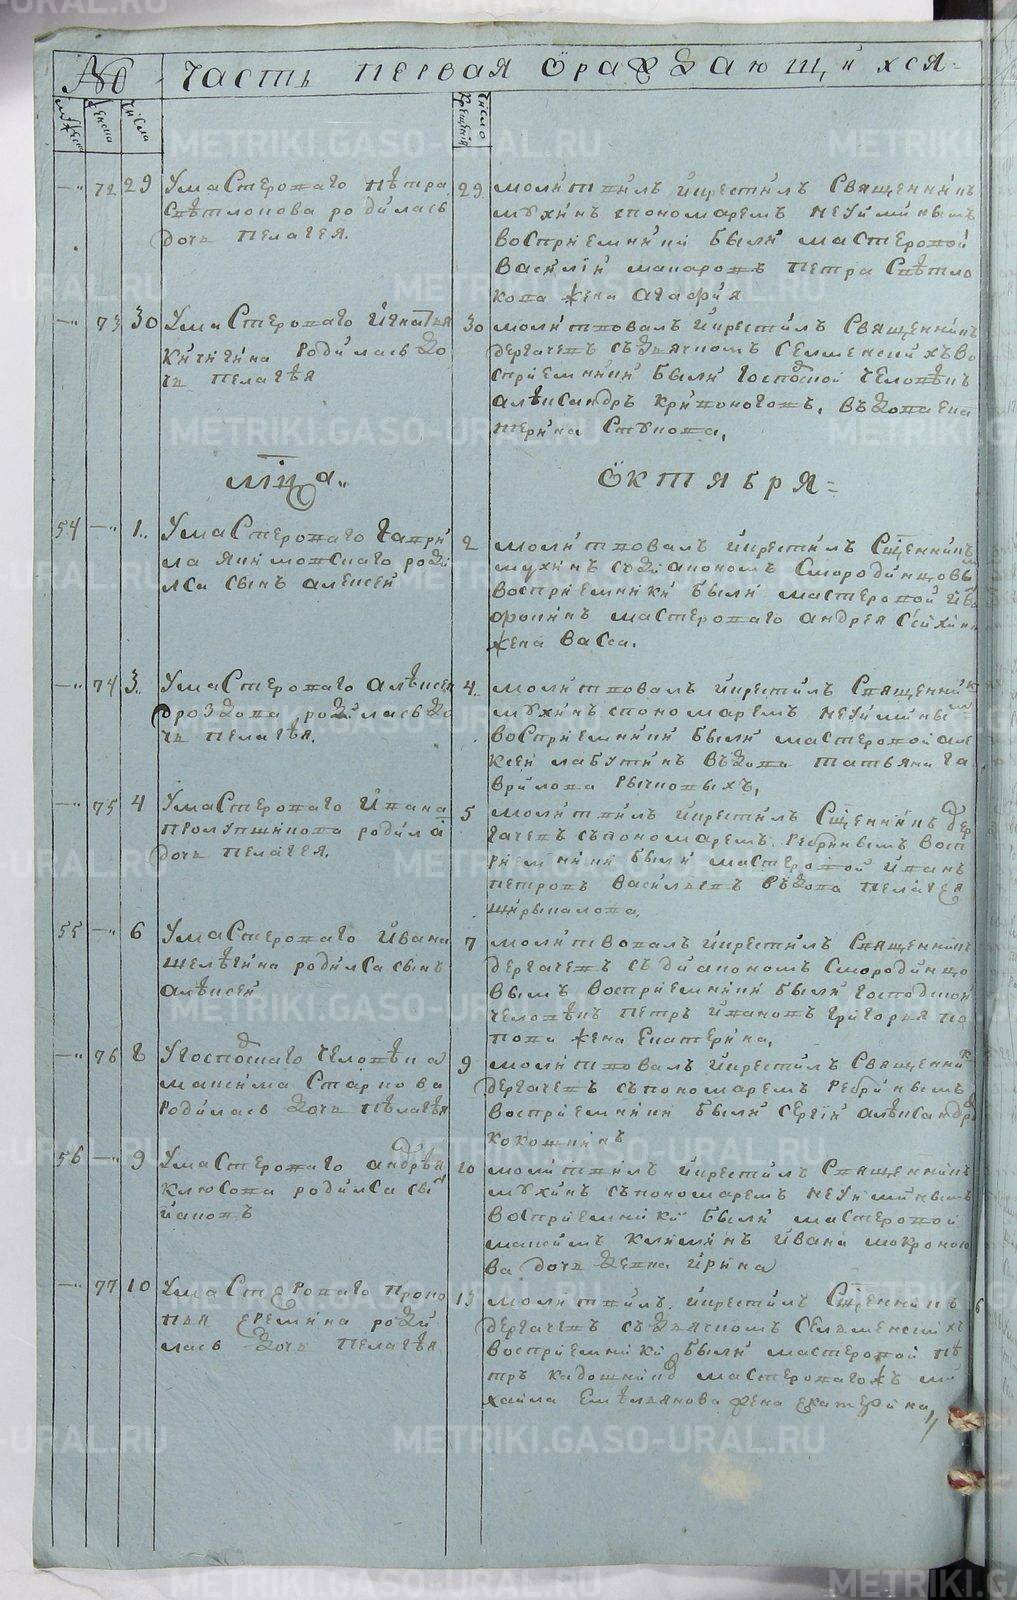 № Часть первая о раждающихся
мужеска женска числа
число крещения
72 29 У мастероваго Петра
Светлокова родилась
дочь Пелагея.
29 молитвил и крестил священник
Мухин с пономарем Неуйминым
восприемники были мастеровой
Василий Макаров Петра Светло
кова жена Агафия
73 30 У мастероваго Игнатья
Кичигина родилась до
чь Пелагея
30 молитвовал и крестил священник
Дергачев с дьячком Селменских во
сприемники были господской человек
Александр Кривоногов, вдова Ека
терина Стукова,
мца
октября
54 1 У мастероваго Гаври
ла Якимовскаго роди
лса сын Алексей
2 молитвовал и крестил сщенник
Мухин с диаконом Смородинцовы
восприемники были мастеровой
мастероваго Андрея
жена Васса.
74 3 У мастероваго Алексея
Дроздова родилась до
чь Пелагея.
4 молитвовал и крестил священник
Мухин с пономарем Неуйминым
восприемники были мастеровой Але
ксей Лабутин вдова Татьяна Га
врилова Рычковых,
75 4 У мастероваго Ивана
родила
дочь Пелагея.
5 молитвил и крестил сщенник Дер
гачев с пономарем Ребриным восп
риемники были мастеровой Иван
Петров Васильев вдова Пелагея
55 6 У мастероваго Ивана
Шелегина родилса сын
Алексей
7 молитвовал и крестил священник
Дергачев с диаконом Смородинцо
вым восприемники были господской
человек Петр Иванов Григорья По
пова жена Екатерина,
76 8 У господскаго человека
Максима Старкова
родилась дочь Пелагея
9 молитвовал и крестил священник
Дергачев с пономарем Ребриным
восприемники были Сергий Александр
Кокошкин
56 9 У мастероваго Андрея
Клюсова родилса сын
Иаков
10 молитвил и крестил священник
Мухин с пономарем Неуйминым
восприемники были мастеровой
Максим Климин Ивана Мокроно
ва дочь девка Ирина
77 10 У мастероваго Проко
пья Еремина роди
лась дочь Пелагея
15 молитвил и крестил сщенник
Дергачев с дьячком Селменских
восприемники были мастеровой Пе
тр мастероваго Ми
хайла Емельянова жена Екатерина
METRIKI.GASO-URAL.RU